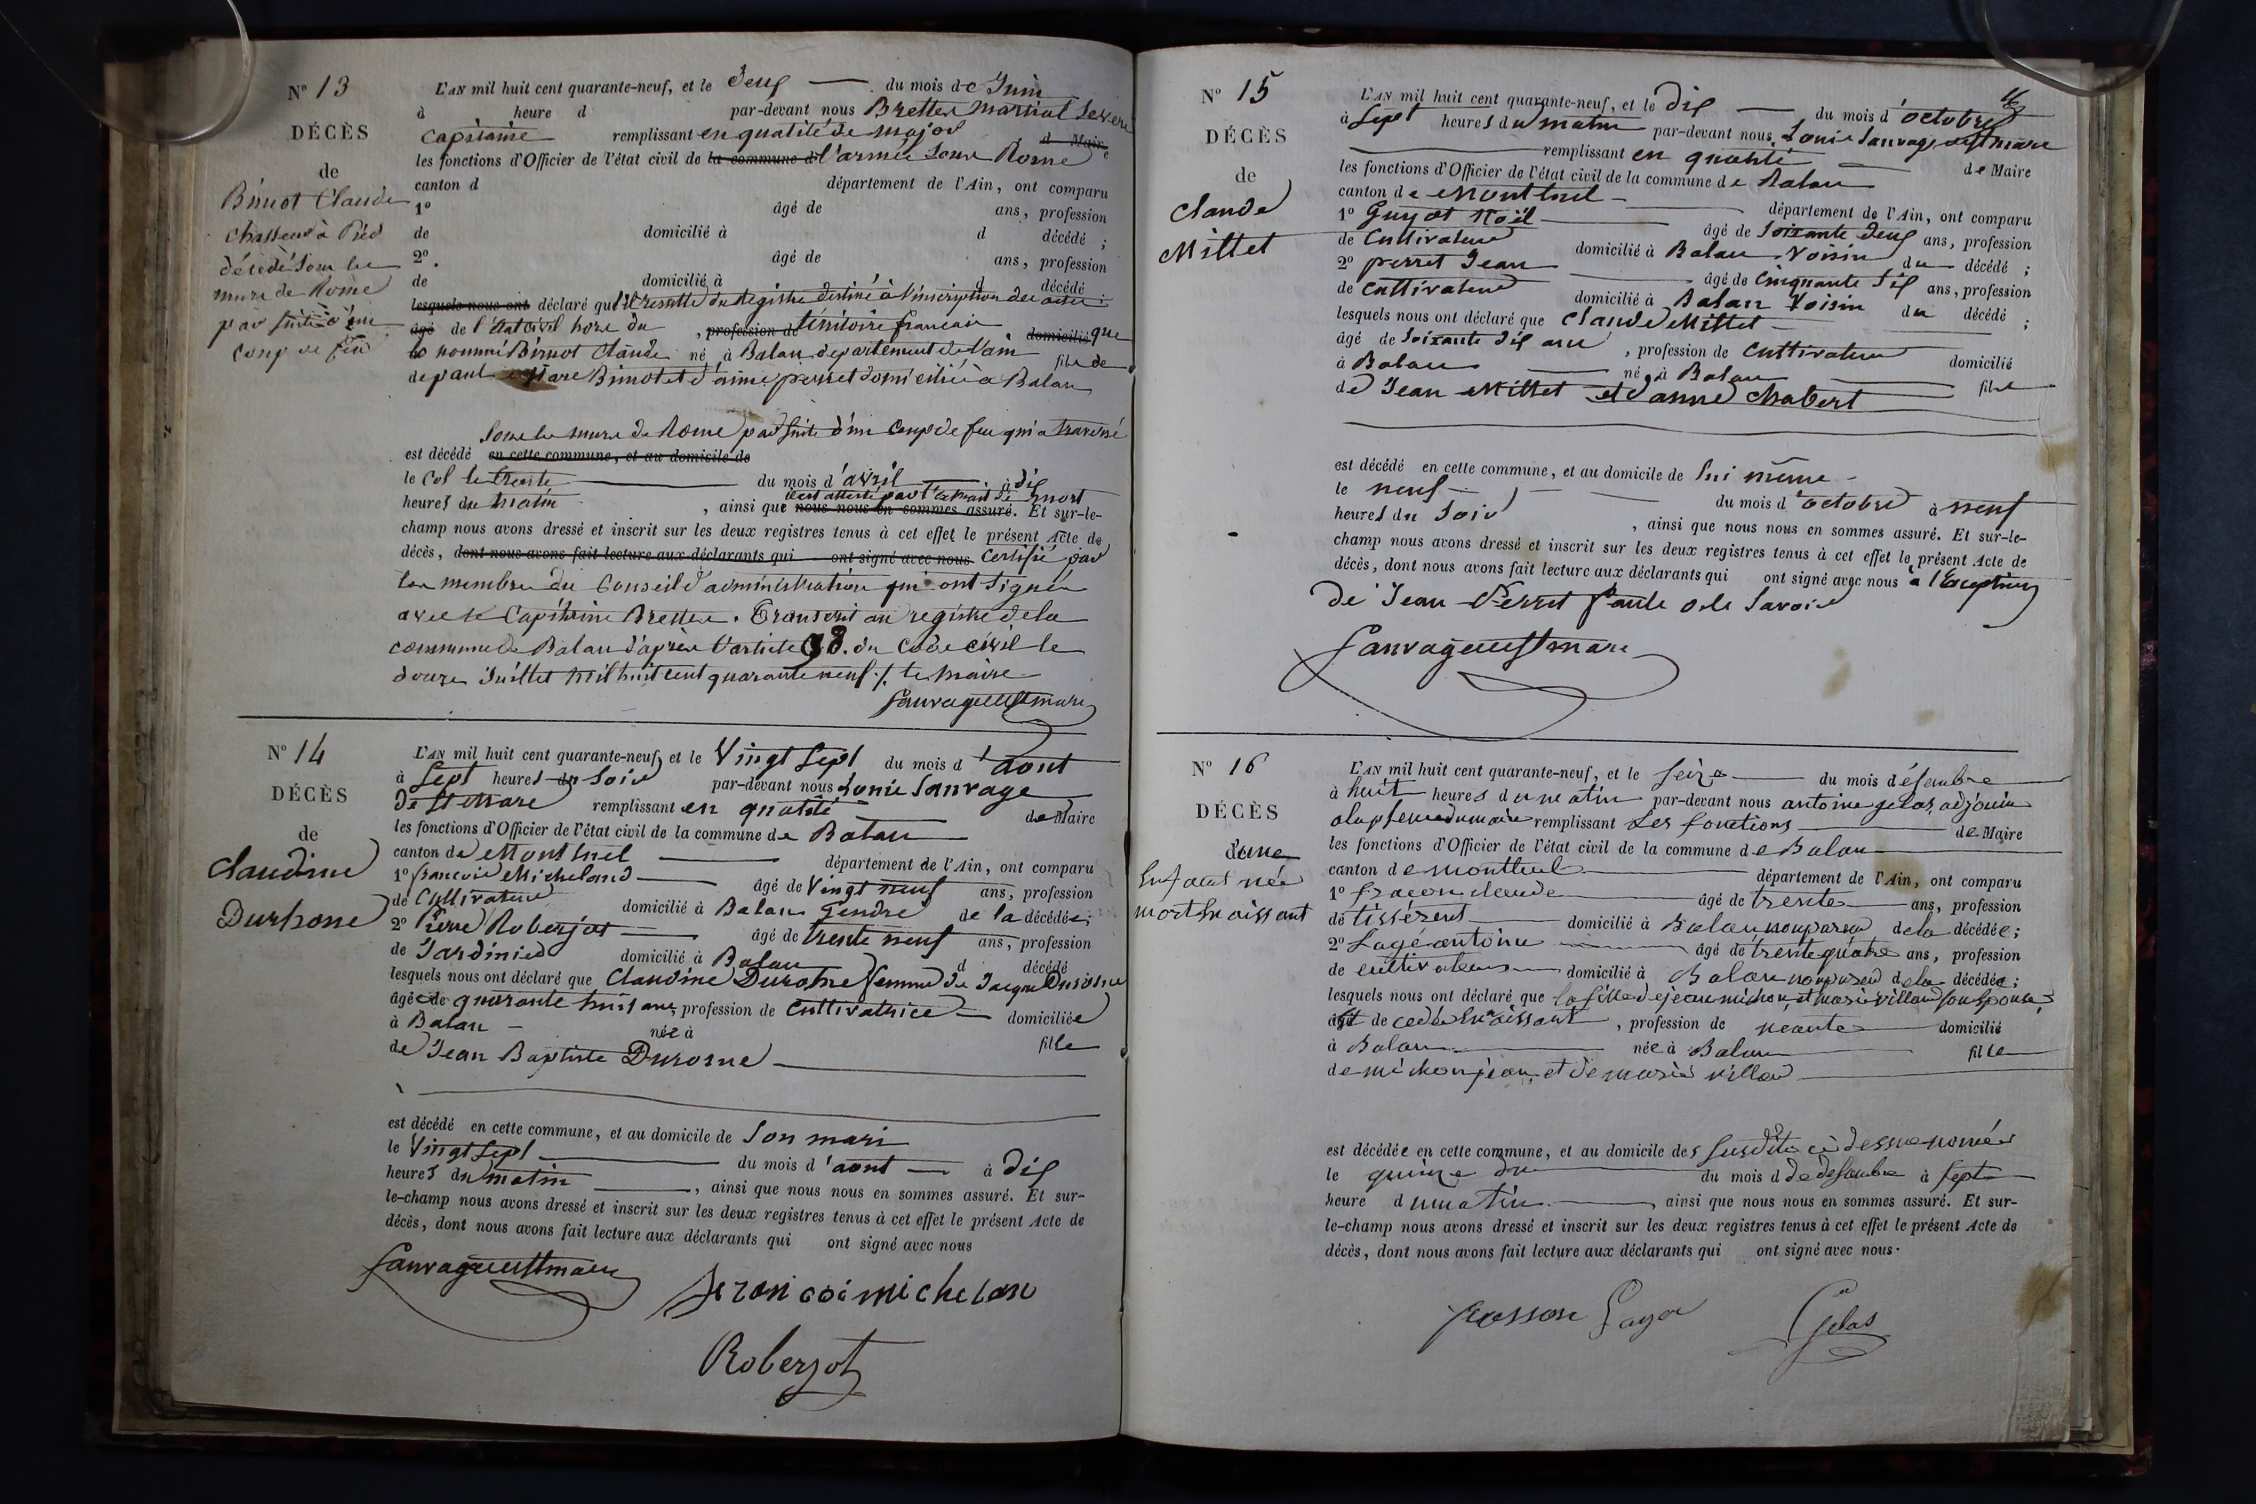 N° 13
DÉCÈS
de
Bimot Claude
chasseur à Pied
décédé sous les
murs de Rome
par suite d'un
coup de feu
L'AN mil huit cent quarante-neuf, et le deux du mois de Juin
à heure d par-devant nous Bretter Martial Severe
capitaine remplissant en qualité de major d Maire
les fonctions d'Officier de l'état civil de la commune d l'armée sous Rome
canton d département de l'Ain, ont comparu
1° âgé de ans, profession
de domicilié à d décédé ;
2° âgé de ans, profession
de domicilié à d décédé
lesquels nous ont déclaré qu'il resulte du Registre destiné à l'inscription des actes
âgé de l'Etat civil hors du , profession de térritoire francais , domicilié que
le nommé Bimot Claude né à Balan departement de l'ain fils de
de paul Bimot et d'aime perret domiciliée à Balan
Sous les murs de Rome par suite d'un coup de feu qui a traversé
est décédé en cette commune, et au domicile de
le Col le trente du mois d'avril à dix
heures du matin , ainsi que c'est attesté par l'extrait de mort nous nous en sommes assuré. Et sur-le-
champ nous avons dressé et inscrit sur les deux registres tenus à cet effet le présent Acte de
décès, dont nous avons fait lecture aux déclarants qui ont signé avec nous Certifié par
les membres du Conseil d'administration qui ont signés
avec le Capitaine Bretter. Transcrit au registre de la
commune de Balan d'après l'article 98. du Code civil le
douze Juillet mil huit cent quarante neuf ./. le maire
Sauvage de St mare
N° 14
DÉCÈS
de
Claudine
Durhone
L'AN mil huit cent quarante-neuf, et le Vingt Sept du mois d'aout
à Sept heures du Soir par-devant nous Louis Sauvage
De St Mare remplissant en qualité de Maire
les fonctions d'Officier de l'état civil de la commune de Balan
canton de Montluel département de l'Ain, ont comparu
1° francois Micheland âgé de Vingt neuf ans, profession
de Cultivateur domicilié à Balan Gendre de la décédée;
2° Pierre Roberjot âgé de trente neuf ans, profession
de Jardinier domicilié à Balan d décédé
lesquels nous ont déclaré que Claudine Durosne femme de Jacque Durosne
âgée de quarante huit ans profession de Cultivatrice domiciliée
à Balan née à
de Jean Baptiste Durosne fille
est décédé en cette commune, et au domicile de Son mari
le Vingt Sept du mois d'aout à dix
heures du matin , ainsi que nous nous en sommes assuré. Et sur-
le-champ nous avons dressé et inscrit sur les deux registres tenus à cet effet le présent Acte de
décès, dont nous avons fait lecture aux déclarants qui ont signé avec nous
Sauvage de St mare
francoi michelan
Roberjot
16
N° 15
DÉCÈS
de
Claude
Millet
L'AN mil huit cent quarante-neuf, et le dix du mois d'octobre
à Sept heures du matin par-devant nous Louis Sauvage de St mare
remplissant en qualité de Maire
les fonctions d'Officier de l'état civil de la commune de Balan
canton de Montluel département de l'Ain, ont comparu
1° Guyot Noël âgé de Soixante deux ans, profession
de Cultivateur domicilié à Balan Voisin du décédé ;
2° perret Jean âgé de Cinquante Six ans, profession
de Cultivateur domicilié à Balan Voisin du décédé ;
lesquels nous ont déclaré que Claude Millet
âgé de Soixante dix ans , profession de Cultivateur domicilié
à Balan né à Balan fils
de Jean Millet et d'anne Chabert
est décédé en cette commune, et au domicile de lui même
le neuf du mois d'octobre à neuf
heures du Soir , ainsi que nous nous en sommes assuré. Et sur-le-
champ nous avons dressé et inscrit sur les deux registres tenus à cet effet le présent Acte de
décès, dont nous avons fait lecture aux déclarants qui ont signé avec nous à l'Exception
de Jean Perret faute de le Savoir
Sauvage de St mare
N° 16
DÉCÈS
d'une
Enfant née
mort Enaissant
L'AN mil huit cent quarante-neuf, et le Seize du mois désembre
à huit heures du matin par-devant nous antoine gelas adjouin
alapsence du maire remplissant Les fonctions de Maire
les fonctions d'Officier de l'état civil de la commune de Balan
canton de montluel département de l'Ain, ont comparu
1° claude âgé de trente ans, profession
de tisserent domicilié à Balan non paren dela décédée;
2° Lagé antoine âgé de trente quatre ans, profession
de cultivateur domicilié à Balan non paren dela décédée;
lesquels nous ont déclaré que la fille de jean michon et marie villon son epouse
âgé de cedée Enaissant , profession de neante domicilié
à Balan née à Balan fille
de michon jean et de marie villon
est décédée en cette commune, et au domicile des Susdits cidessue nomées
le quinze du du mois d de desambre à Sept
heure dumatin ainsi que nous nous en sommes assuré. Et sur-
le-champ nous avons dressé et inscrit sur les deux registres tenus à cet effet le présent Acte de
décès, dont nous avons fait lecture aux déclarants qui ont signé avec nous.
Gelas